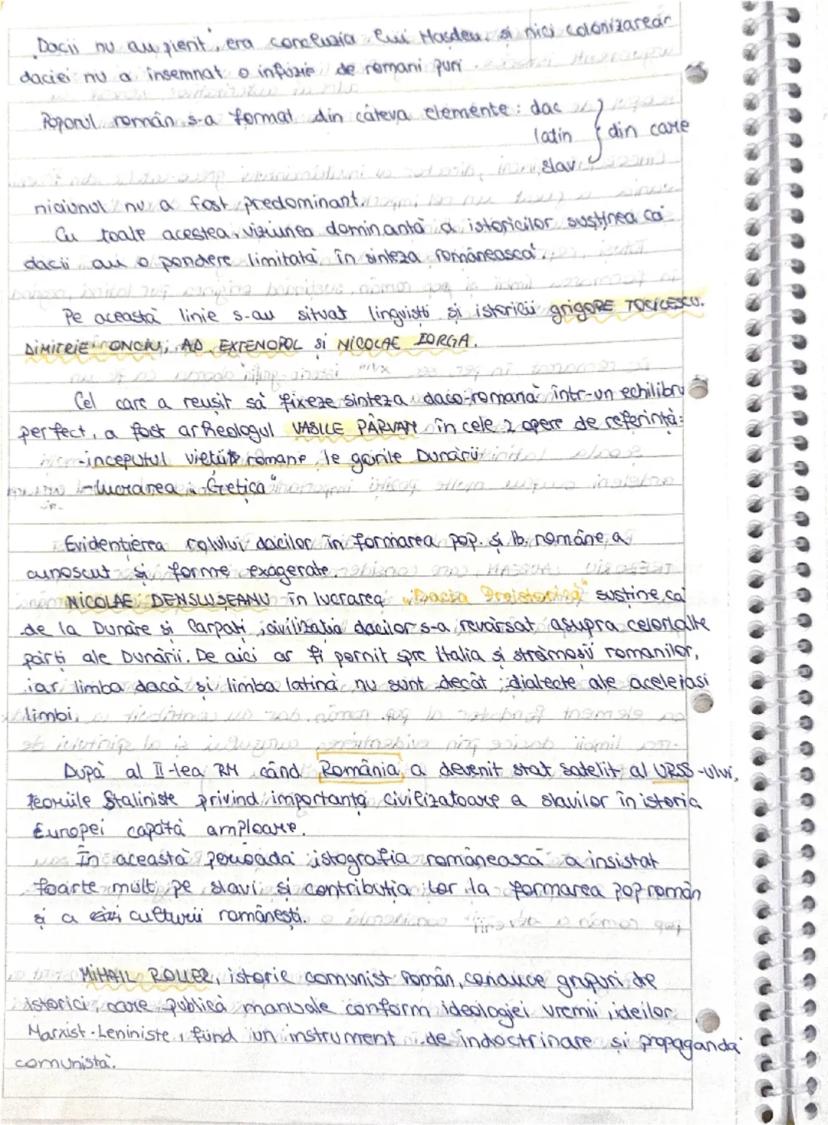 "Dacii nu au pierit", era concluzia lui Hasdeu. și nici colonizarea
daciei nu a însemnat o infuzie de romani puri.
Poporul român s-a format din câteva elemente: dac
latin } din care
slav
niciunul nu a fost predominant.
Cu toate acestea, viziunea dominantă a istoricilor susținea că
dacii au o pondere limitată în sinteza românească.
Pe această linie s-au situat lingviști și istoricii grigORE TOCILESCU.
DIMITRIE ONCIU, AD EXTENOPOL și NICOLAE IORGA.
Cel care a reușit să fixeze sinteza daco-romană într-un echilibru
perfect, a fost arheologul VASILE PÂRVAN în cele 2 opere de referință:
-începutul vieții romane le gurile Dunării
-lucrarea "Gretica"
Evidențierea rolului dacilor în formarea pop. și lb. române a
cunoscut și forme exagerate.
NICOLAE DENSLUȘEANU în lucrarea "Dacia Preistorică" susține că
de la Dunăre și Carpați, civilizația dacilor s-a revărsat asupra celorlalte
părți ale Dunării. De aici ar fi pornit spre Italia și strămoșii romanilor,
iar limba dacă și limba latină nu sunt decât dialecte ale aceleiași
limbi.
După al II-lea RM când România a devenit stat satelit al URSS-ului,
teoriile Staliniste privind importanța civilizatoare a slavilor în istoria
Europei capătă amploare.
În această perioadă istografia românească a insistat
foarte mult pe slavi și contribuția lor la formarea pop român
și a culturii românești.
MIHAIL ROLLER, istoric comunist român, conduce grupuri de
istorici, care publică manuale conform ideologiei vremii, ideilor
Marxist-Leniniste, fiind un instrument de îndoctrinare și propagandă
comunistă.